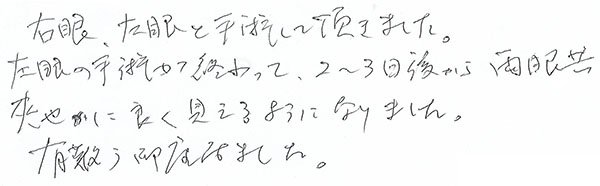 右眼、左眼と手術して頂きました。
左眼の手術が終わって、2〜3日後から両眼共
に良く見えるようになりました。
有難う御座いました。